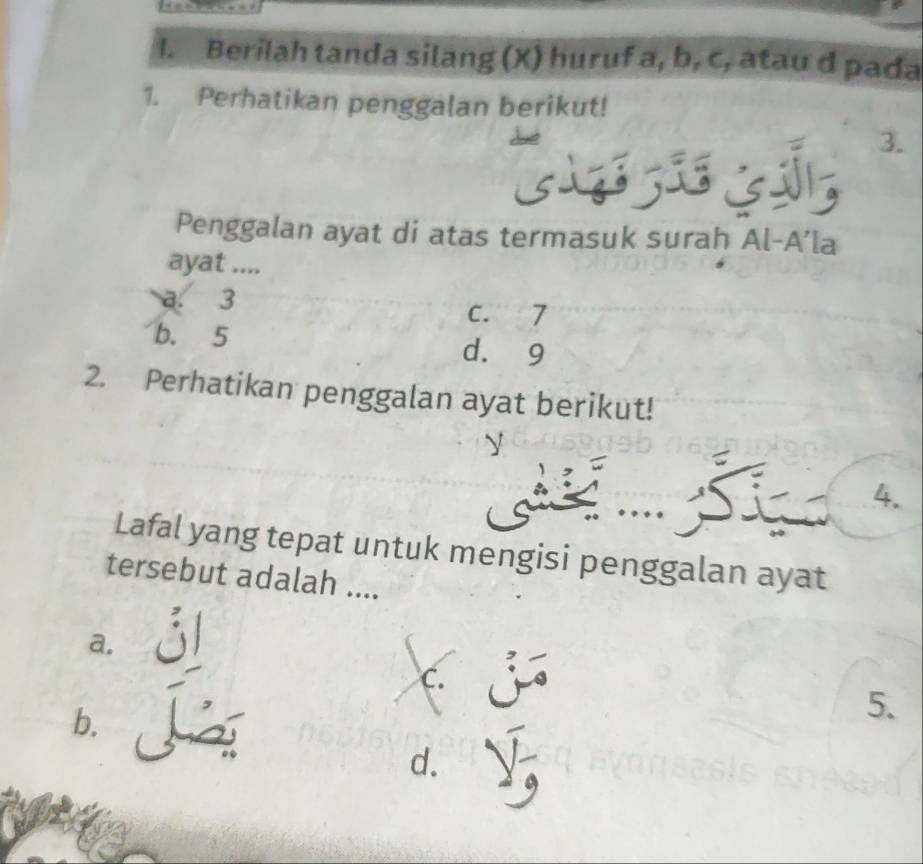 I. Berilah tanda silang (X) huruf a, b, c, atau d pada
1. Perhatikan penggalan berikut!
وَالَّذِيْ قَدَّرَ فَهَدٰىۖ
Penggalan ayat di atas termasuk surah Al-A'la
ayat ....
a. 3
b. 5
c. 7
d. 9
2. Perhatikan penggalan ayat berikut!
سَيَذَّكَّرُ .... يَّخْشٰىۙ
Lafal yang tepat untuk mengisi penggalan ayat
tersebut adalah ....
a. اِنْ
b. يَصْلَى
c. مَنْ
d. وَلَا
3.
4.
5.